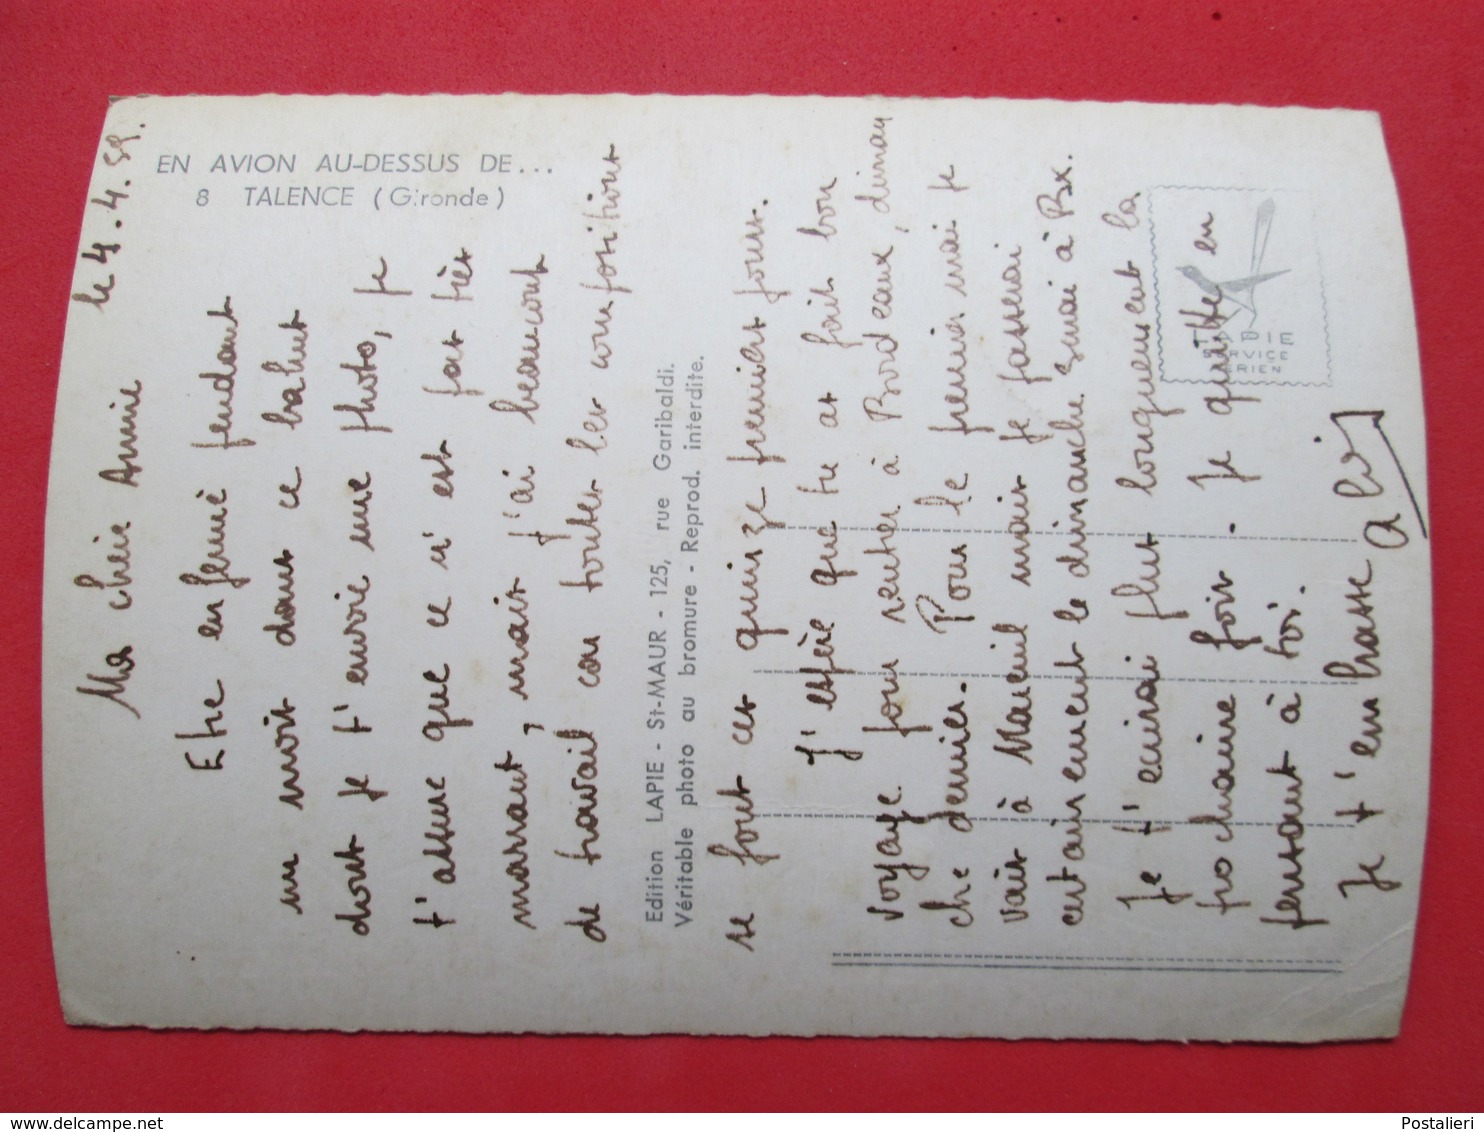 EN AVION AU-DESSUS DE...
8 TALENCE (Gironde)
le 4.4.59.
Ma chère Annie
Etre enfermé pendant
un mois dans ce bahut
dont je t'envoie une photo, je
t'assure que ce n'est pas très
marrant, mais j'ai beaucoup
de travail car toutes les compositions
Edition LAPIE - St-MAUR - 125, rue Garibaldi.
Véritable photo au bromure - Reprod. interdite.
se font ces quinze premiers jours.
J'espère que tu as fait bon
voyage pour rentrer à Bordeaux, diman
che dernier. Pour le premier mai je
vais à Mareuil mais je passerai
certainement le dimanche 3 mai à Bx.
Je t'écrirai plus longuement la
prochaine fois. Je quitte en
pensant à toi.
Je t'embrasse
LAPIE
SERVICE
AERIEN
Postalieri